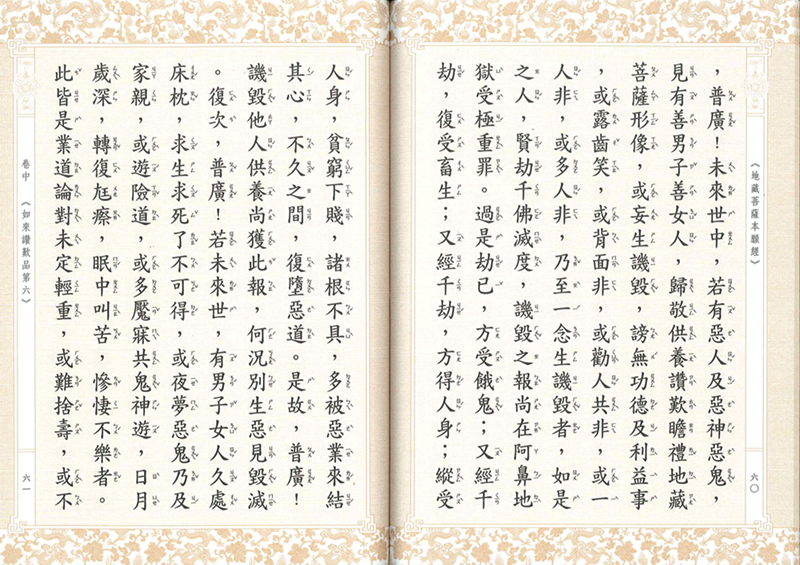 《地藏菩薩本願經》
六〇
，普廣！未來世中，若有惡人及惡神惡鬼，
見有善男子善女人，歸敬供養讚歎瞻禮地藏
菩薩形像，或妄生譏毀，謗無功德及利益事
，或露齒笑，或背面非，或勸人共非，或一
人非，或多人非，乃至一念生譏毀者，如是
之人，賢劫千佛滅度，譏毀之報尚在阿鼻地
獄受極重罪。過是劫已，方受餓鬼；又經千
劫，復受畜生；又經千劫，方得人身；縱受
人身，貧窮下賤，諸根不具，多被惡業來結
其心，不久之間，復墮惡道。是故，普廣！
譏毀他人供養尚獲此報，何況別生惡見毀滅
。復次，普廣！若未來世，有男子女人久處
床枕，求生求死了不可得，或夜夢惡鬼乃及
家親，或遊險道，或多魘寐共鬼神遊，日月
歲深，轉復尪瘵，眠中叫苦，慘悽不樂者。
此皆是業道論對未定輕重，或難捨壽，或不
卷中 《如來讚歎品第六》
六一